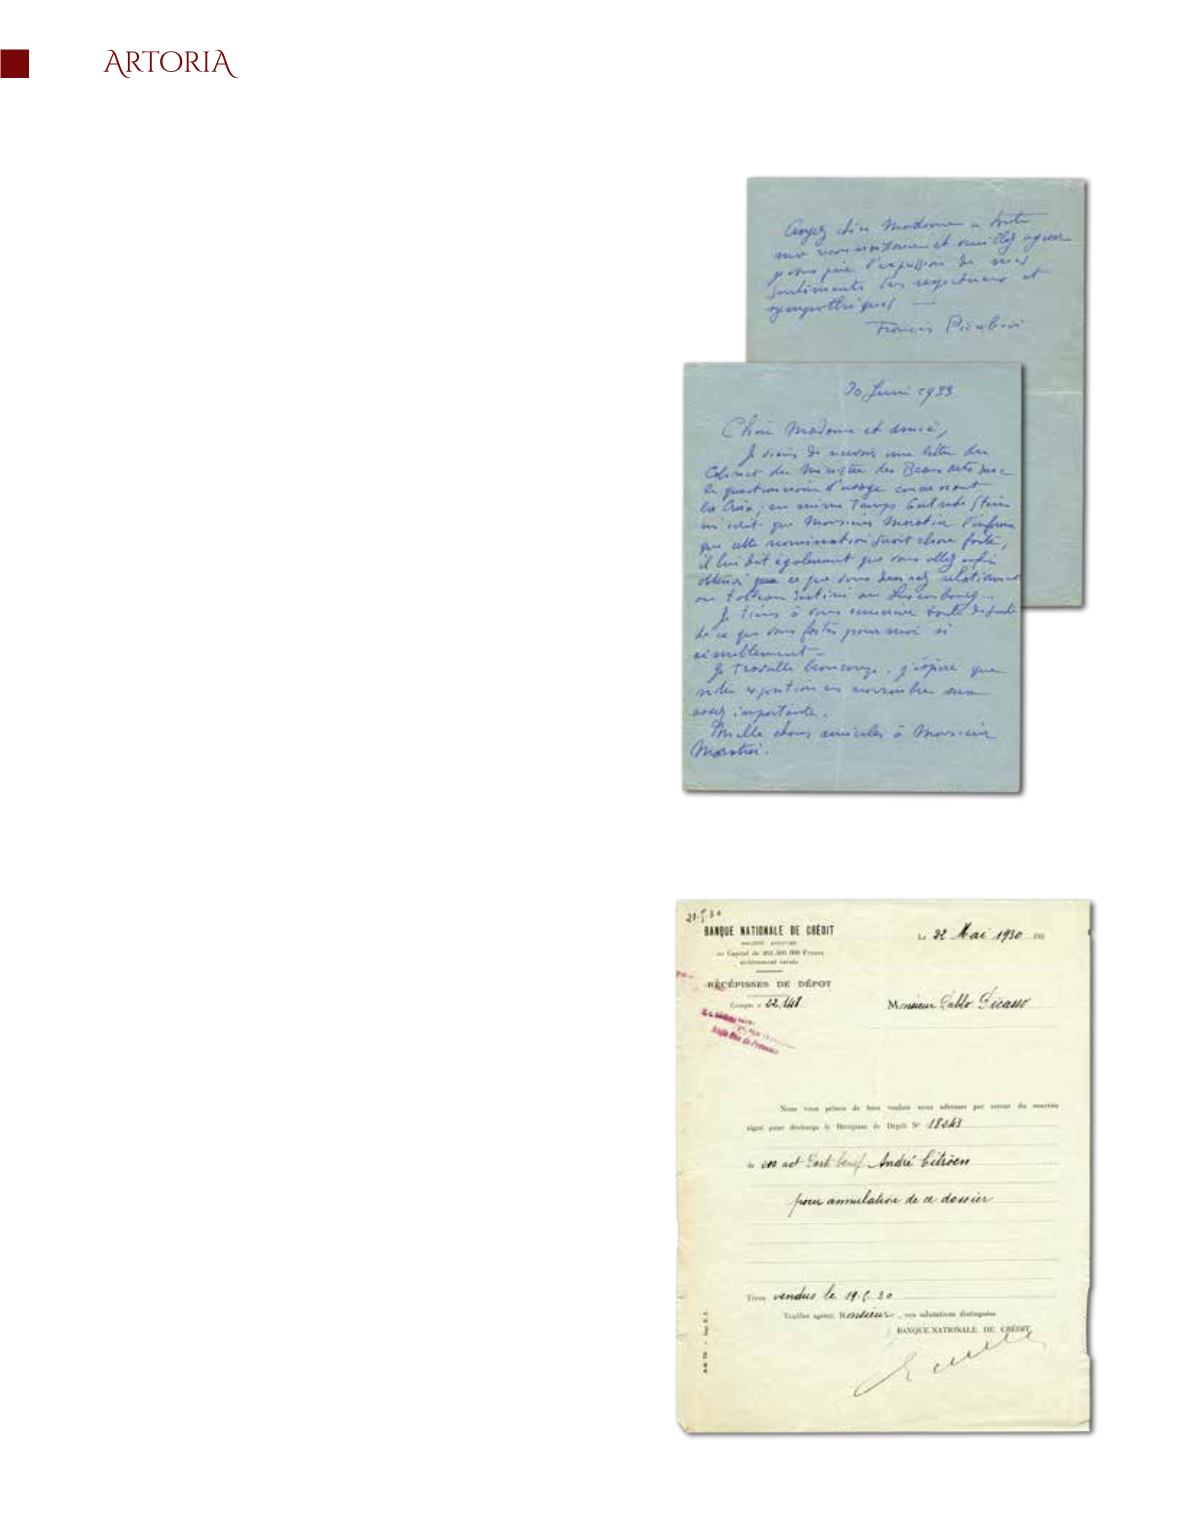 ARTORIA
Croyez chère Madame à toute
ma reconnaissance et veuillez agréer
je vous prie l'expression de mes
sentiments très respectueux et
sympathiques —
Francis Picabia
30 Juin 1933
Chère Madame et amie,
Je viens de recevoir une lettre du
Cabinet du Ministre des Beaux Arts avec
le questionnaire d'usage concernant
la Croix; en même temps Gertrude Stein
m'écrit que Monsieur Maratier l'informe
que cette nomination serait chose faite,
il lui dit également que vous allez enfin
obtenir ce que vous desirez relativement
au tableau destiné au Luxembourg...
Je tiens à vous remercier toute de suite
de ce que vous faites pour moi si
aimablement —
Je travaille beaucoup. j'espère que
notre exposition en novembre sera
assez importante.
Mille choses amicales à Monsieur
21.5.30
BANQUE NATIONALE DE CRÉDIT
SOCIÉTÉ ANONYME
au Capital de Francs
entièrement versés
Le 22 Mai 1930 193
RÉCÉPISSÉS DE DÉPOT
Compte n° 22.148
Monsieur Pablo Picasso
Nous vous prions de bien vouloir nous adresser par retour du courrier
signé pour décharge le Récépissé de Dépôt N° 18343
de act Part benef André Citröen
pour annulation de ce dossier
Titres vendus le 19.5.30
Veuillez agréer, Monsieur, nos salutations distinguées
BANQUE NATIONALE DE CRÉDIT